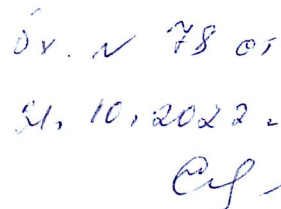 Вх. N 78 от
31.10.2022.